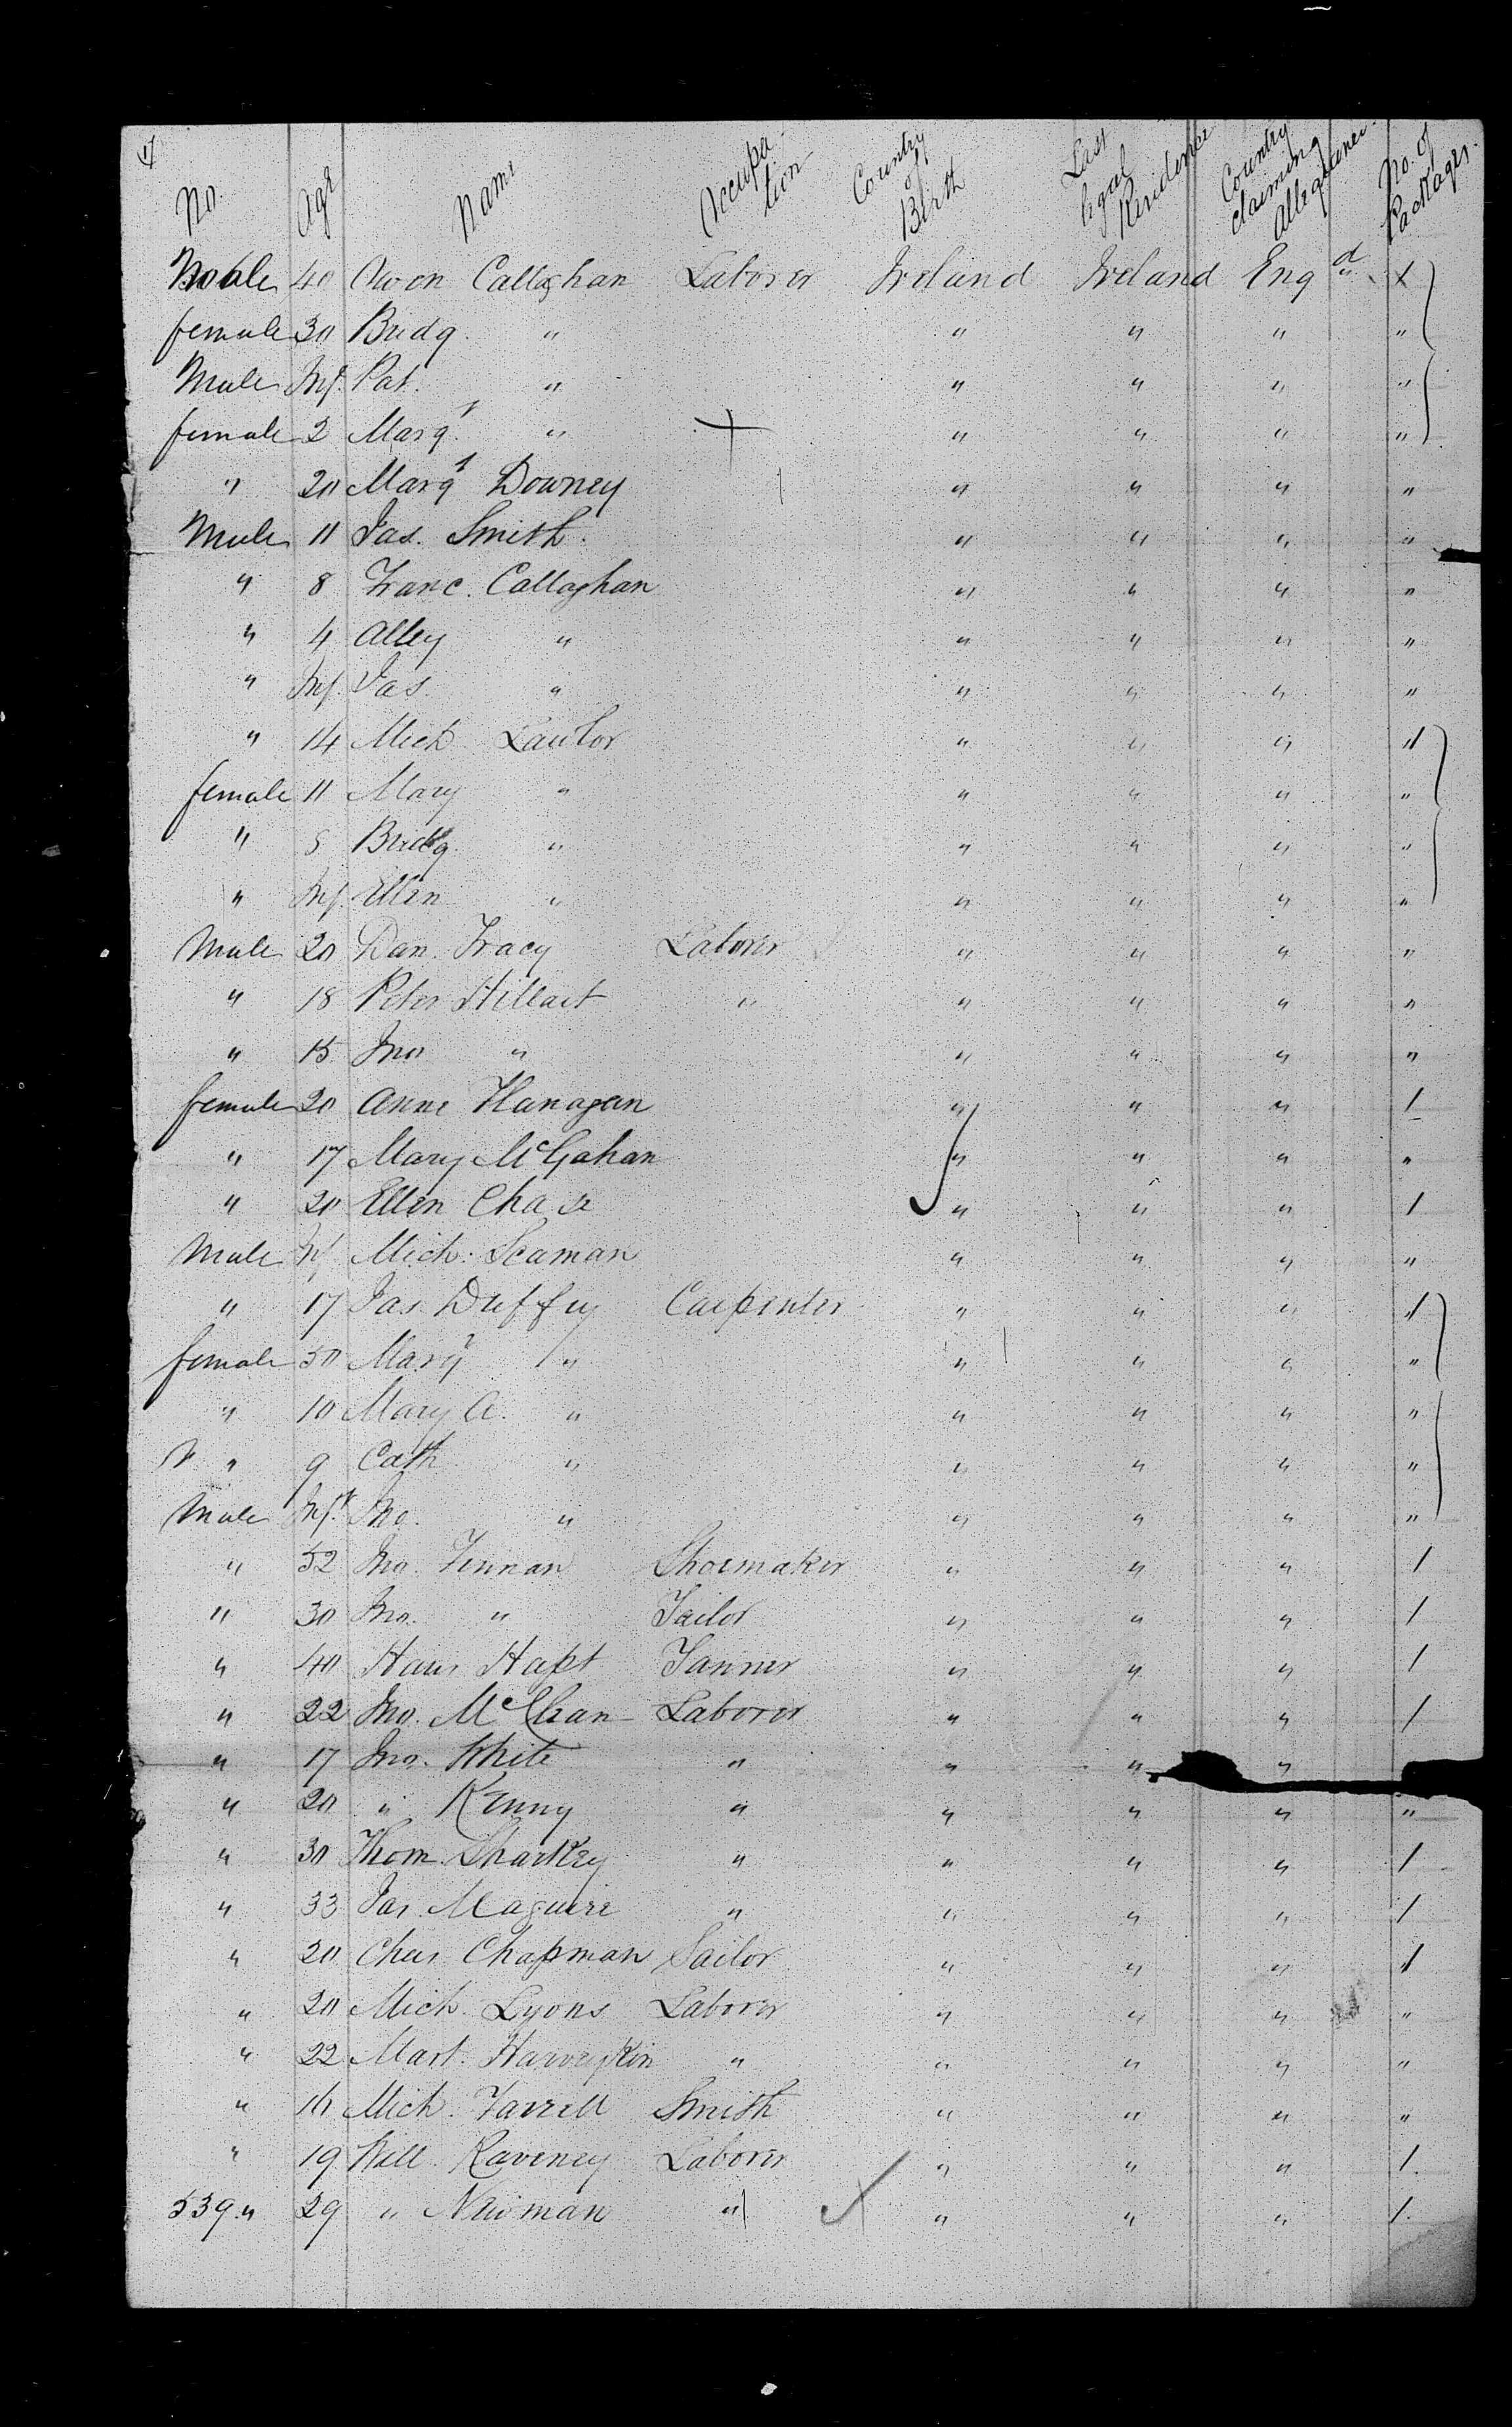 No. Age Name Occupation Country of Birth Last legal Residence Country claiming Allegiance No. of Packages
Male 40 Owen Callaghan Laborer Ireland Ireland Engd
female 30 Bridg. " " " " "
Male Inf. Pat. " " " " "
female 2 Margt " " " " "
" 20 Margt Downey " " " "
Male 11 Jas. Smith. " " " "
" 8 Franc. Callaghan " " " "
" 4 Alley " " " " "
" Inf. Jas. " " " " "
" 14 Mich Lawlor " " " "
female 11 Mary " " " " "
" Bridg. " " " " "
" Inf. Ellen " " " " "
Male 20 Dan. Tracy Laborer " " " "
" 18 Peter " " " " "
" 15 Jno " " " " "
female 20 Anne Flanagan " " " 1
" 17 Mary McGahan " " " "
" 20 Ellen Chase " " " 1
Male Inf Mich. Seaman " " " "
" 17 Jas. Duffy Carpenter " " " 1
female 50 Margt " " " " "
" 10 Mary A. " " " " "
" 9 Cath " " " " "
Male Inft Jno. " " " " "
" 52 Jno. Fennan Shoemaker " " " 1
" 30 Jno. " Tailor " " " 1
" 40 Hans Hapt Tanner " " " 1
" 22 Jno. McClean Laborer " " " 1
" 17 Jno. White " " " "
" 20 " Kenny " " " " "
" 30 Thom. Sharkey " " " " 1
" 33 Jas. Maguire " " " " 1
" 20 Chas Chapman Sailor " " " 1
" 20 Mich. Lyons Laborer " " " "
" 22 Mart. " " " " "
" 16 Mich. Farrell Smith " " " "
" 19 Will. Raveney Laborer " " " 1.
539 " 29 " Newman " " " " 1.